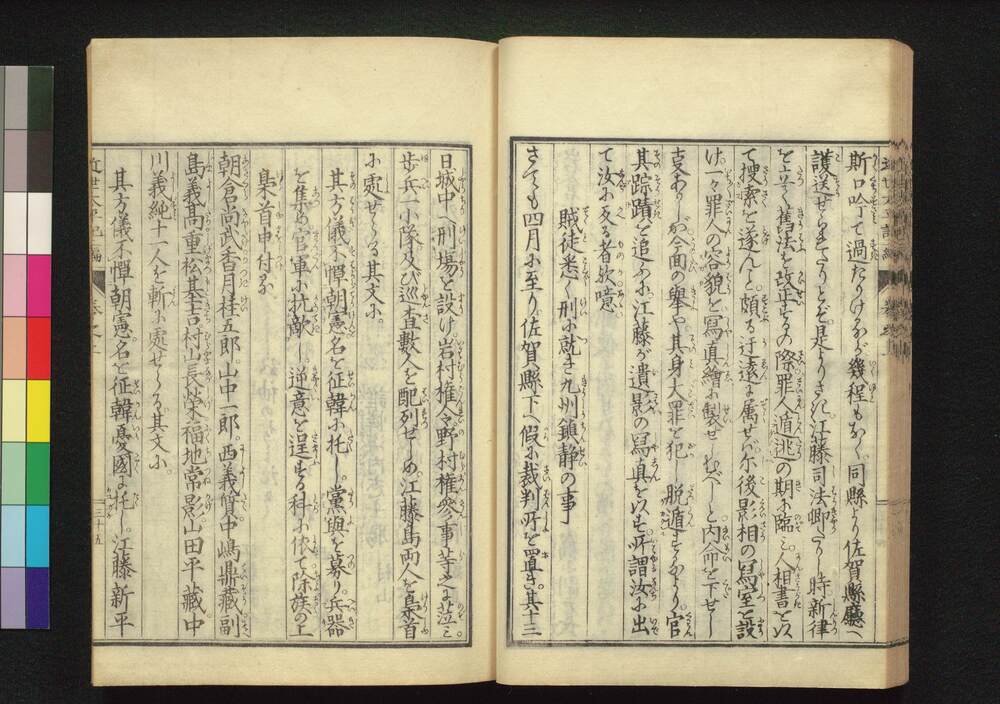 斯口吟て過たりけるが幾程もなく同縣より佐賀縣廳へ
護送せられたりとぞ是よりさき江藤司法卿たりし時新律
を立て舊法を改正するの際罪人遁逃の期に臨み人相書を以
て捜索を遂んと頗る迂遠に属せバ尓後影相の写室を設
け一々罪人の容貌を寫真繪に製せしむべしと内命を下せし
其踪蹟を追ふに江藤が遺影の寫真を以す所謂汝に出
て汝に反る者歟噫
賊徒悉く刑に就き九州鎮静の事
さても四月に至り佐賀縣下へ假に裁判所を置き其十三
日城中へ刑場を設け岩村権令野村権参事等之に莅ミ
歩兵一小隊及び巡査數人を配列せしめ江藤島両人を梟首
に處せらる其文に
其方儀不憚朝憲名を征韓に托し黨與を募り兵器
を集め官軍に抗敵し逆意を逞する科に依て除族の上
梟首申付る
朝倉尚武香月桂五郎山中一郎西義質中嶋鼎藏副
島義高重松基吉村山長榮福地常影山田平藏中
川義純十一人を斬に處せらる其文に
其方儀不憚朝憲名を征韓憂國に托し江藤新平
三十五